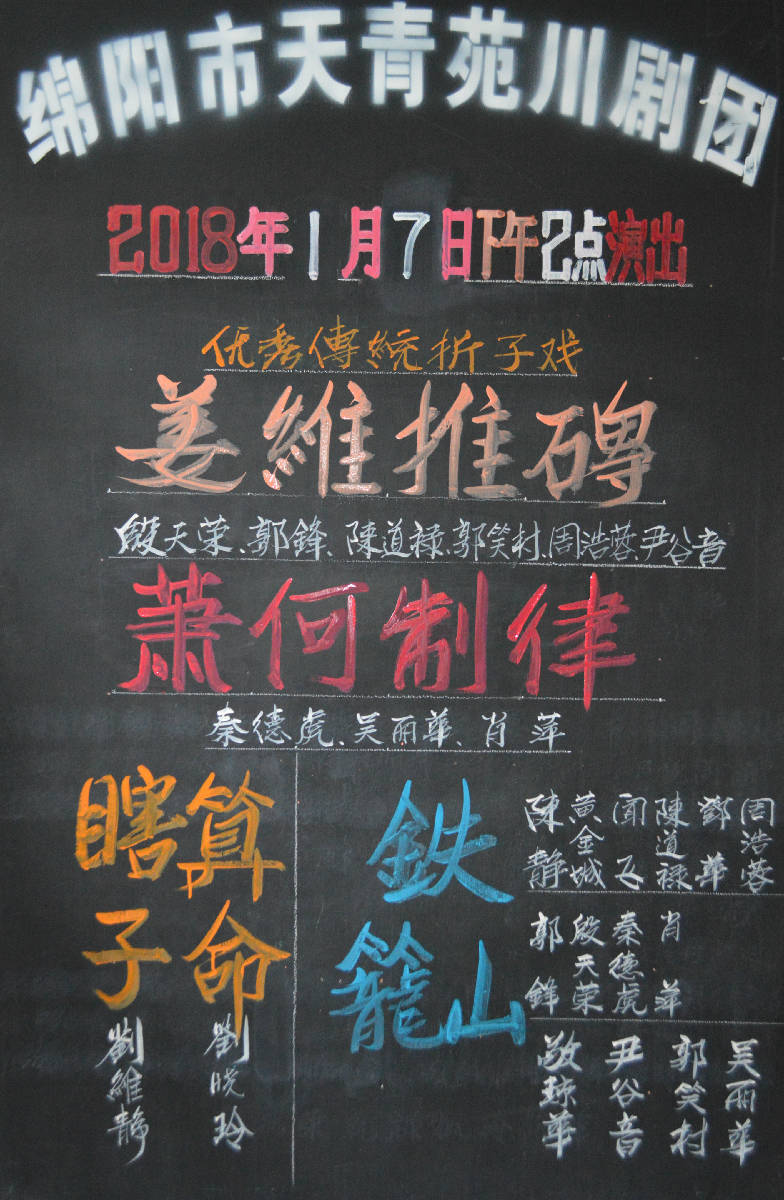 绵阳市天青苑川剧团
2018年1月7日下午2点演出
优秀傳統折子戏
姜維推碑
殷天荣、郭鋒、陳道禄、郭笑村、周浩蓉、尹谷音
萧何制律
秦德虎、吴丽华、肖萍
瞎子
算命
劉維静
劉晓玲
鉄
籠山
陳静
黄金城
闻飞
陳道禄
鄧華
周浩蓉
郭鋒
殷天荣
秦德虎
肖萍
敬琼華
尹谷音
郭笑村
吴丽华